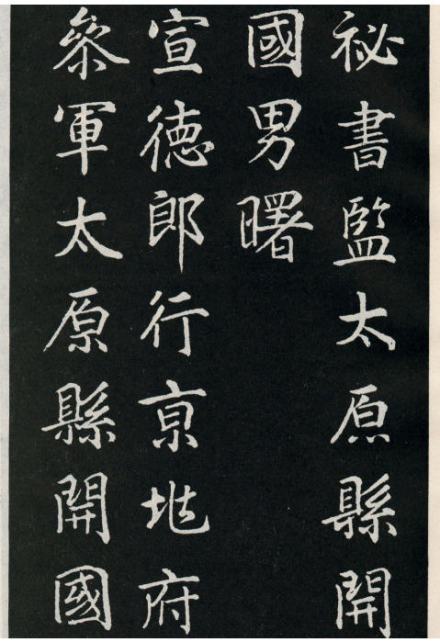 祕書監太原縣開
國男曙
宣德郎行京兆府
參軍太原縣開國